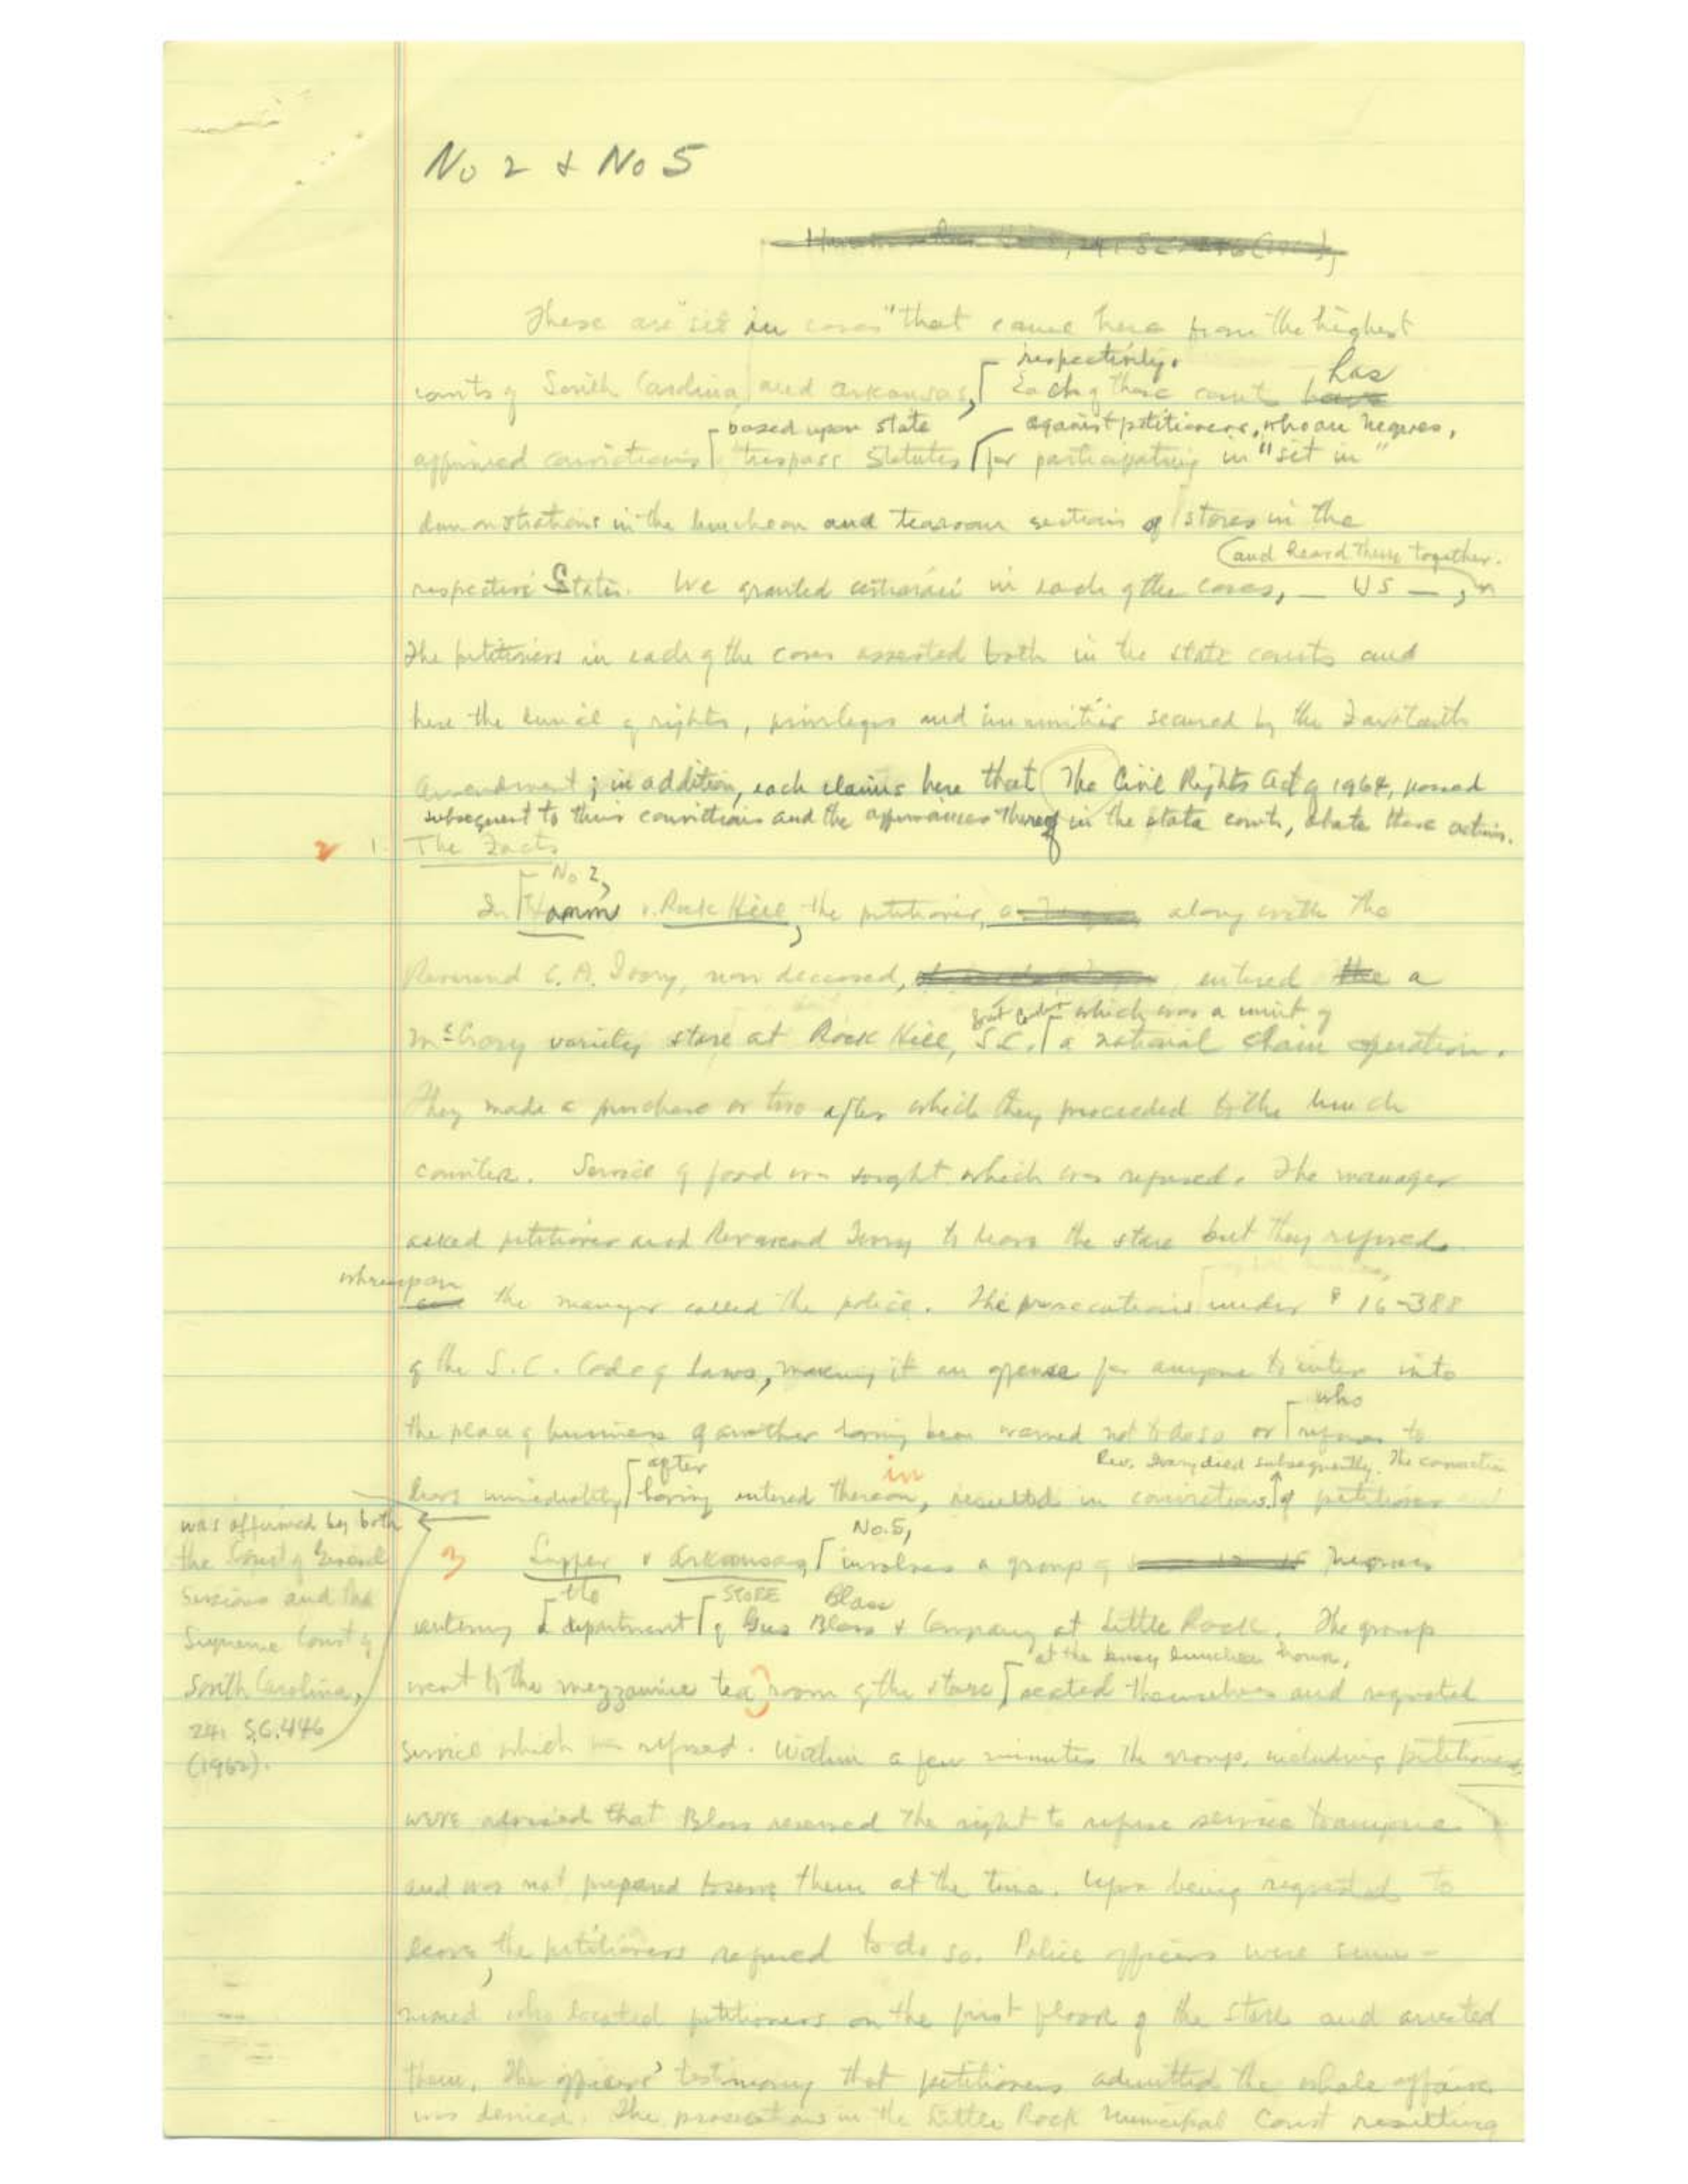 No 2 & No 5
These are "sit in cases" that came here from the highest
respectively.
courts of South Carolina and Arkansas, Each of those courts has
based upon state against petitioners, who are Negroes,
affirmed convictions trespass statutes for participating in "sit in"
demonstrations in the luncheon and tearoom sections of stores in the
and heard them together.
respective States. We granted certiorari in each of the cases, _ US _,
The petitioners in each of the cases asserted both in the state courts and
here the denial of rights, privileges and immunities secured by the Fourteenth
Amendment; in addition, each claims here that The Civil Rights Act of 1964, passed
subsequent to their convictions and the affirmances thereof in the state courts, abate these actions.
2 1. The Facts
No 2,
In Hamm v. Rock Hill, the petitioner, along with the
Reverend C. A. Ivory, now deceased, entered the a
which was a unit of
McCrory variety store at Rock Hill, S.C. a national chain operation.
They made a purchase or two after which they proceeded to the lunch
counter. Service of food was sought which was refused. The manager
asked petitioner and Reverend Ivory to leave the store but they refused
whereupon
the manager called the police. The prosecutions under § 16-388
of the S.C. Code of Laws, making it an offense for anyone to enter into
who
the place of business of another having been warned not to do so or refuses to
after in Rev. Ivory died subsequently. The conviction
leave immediately having entered thereon, resulted in convictions of petitioner
was affirmed by both
the Court of General
Sessions and the
Supreme Court of
South Carolina,
241 S.C. 446
(1962).
No. 5,
3 Lupper v Arkansas, involves a group of Negroes
the STORE Blass
entering department of Gus Blass & Company at Little Rock. The group
at the busy luncheon hour,
went to the mezzanine tea room of the store seated themselves and requested
service which was refused. Within a few minutes the group, including petitioners,
were advised that Blass reserved the right to refuse service to anyone
and was not prepared to serve them at the time. Upon being requested to
leave, the petitioners refused to do so. Police officers were sum-
moned who located petitioners on the first floor of the store and arrested
them. The officers' testimony that petitioners admitted the whole affair
was denied. The prosecutions in the Little Rock Municipal Court resulting